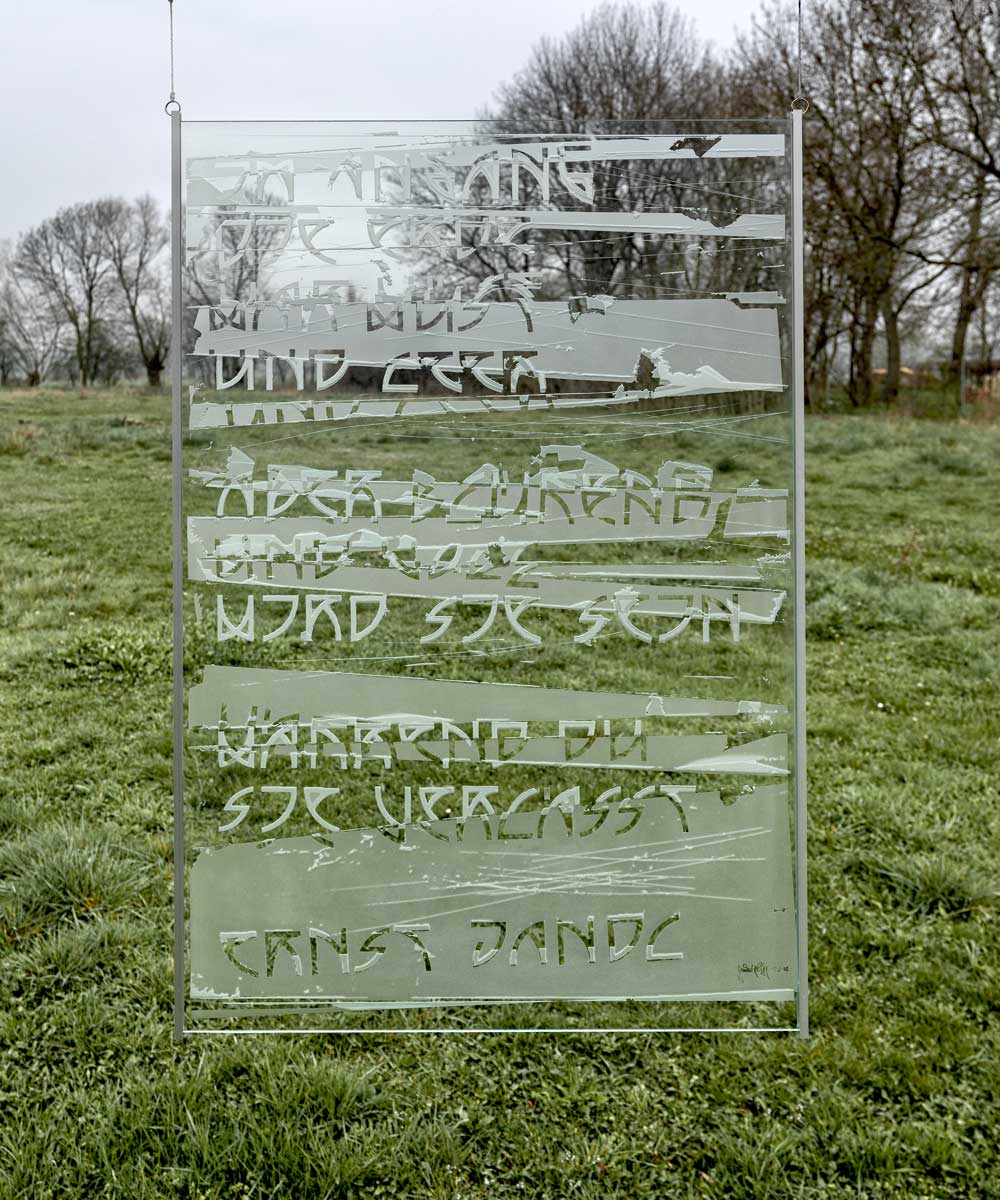 IM ANFANG
DIE ERDE
WAR WÜST
UND LEER
ABER BLÜHEND
UND VOLL
WIRD SIE SEIN
WÄHREND DU
SIE VERLÄSST
ERNST JANDL